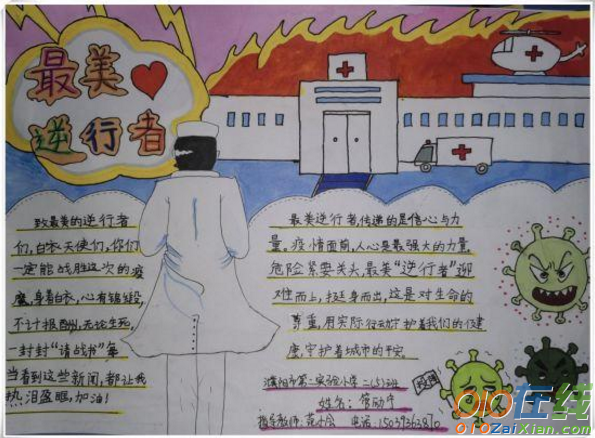 最美
逆行者
致最美的逆行者
们,白衣天使们,你们
一定能战胜这次的疫
魔,身着白衣,心有锦缎,
不计报酬,无论生死,
一封封“请战书”每
当看到这些新闻,都让我
热泪盈眶,加油!
最美逆行者,传递的是信心与力
量,疫情面前,人心是最强大的力量,
危险紧要关头,最美“逆行者”迎
难而上,挺身而出,这是对生命的
尊重,用实际行动守护着我们的健
康,守护着城市的平安,
濮阳市第二实验小学二(5)班
姓名:
指导教师: 电话:15039362870
010在线
010ZaiXian.com